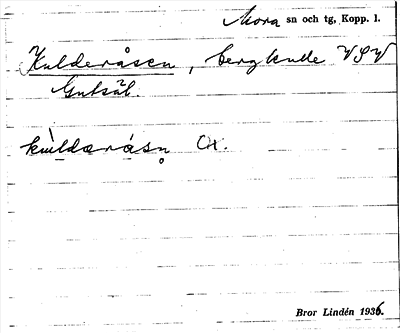 Mora sn och tg, Kopp. l.
Kulderåsen, bergkulle VSV
Gulsäl.
kùldæråsn̥ Ox.
Bror Lindén 1936.